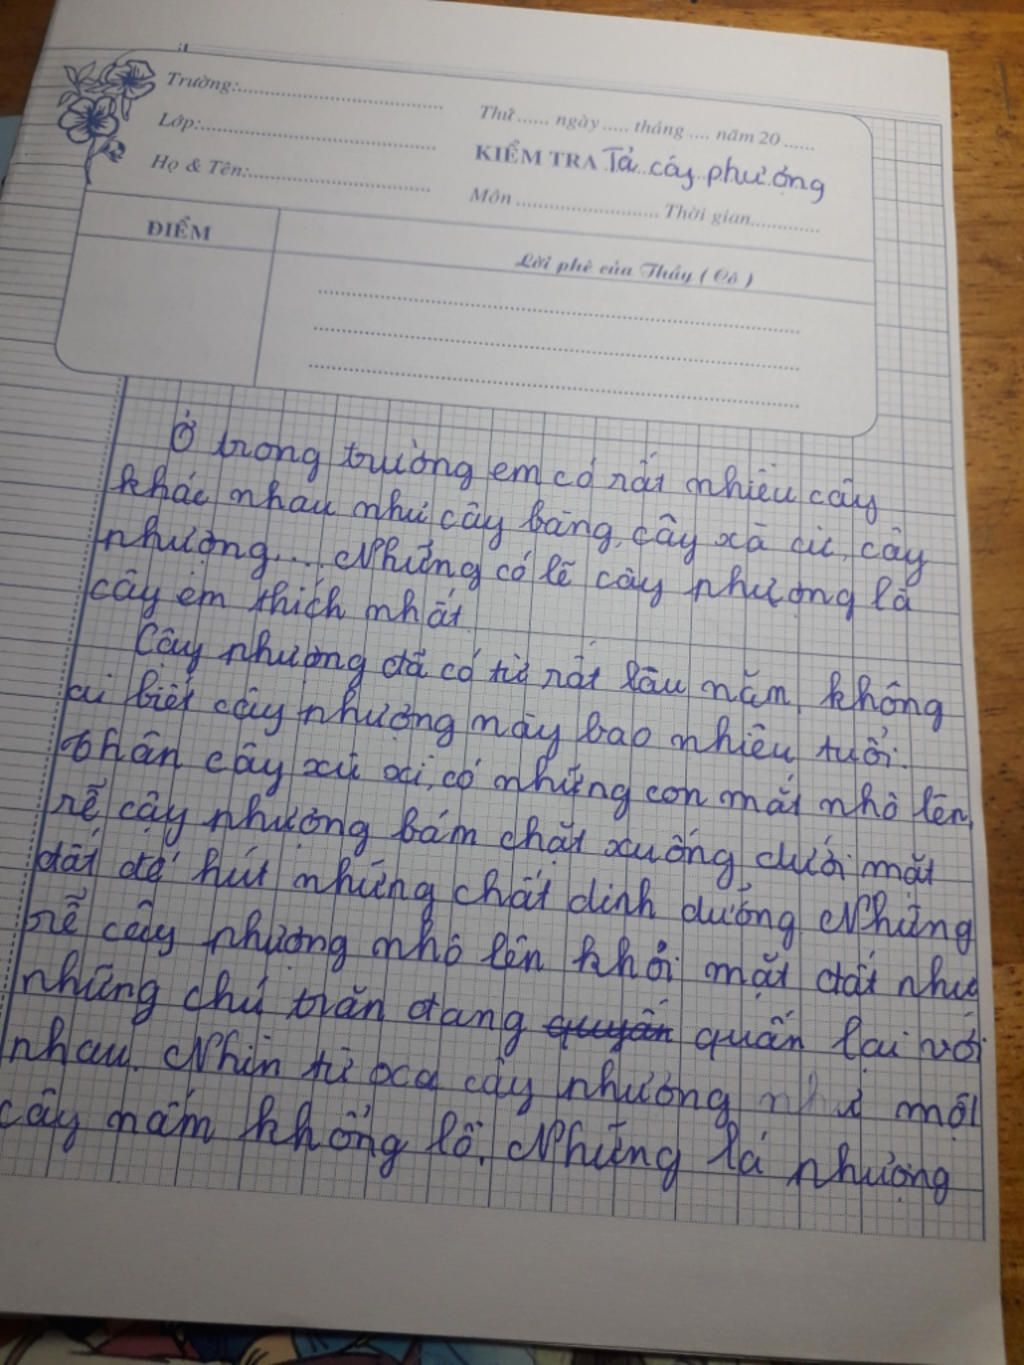 Trường:..............................
Thứ ...... ngày ..... tháng .... năm 20 ......
Lớp:..............................
KIỂM TRA Tả cây phượng
Họ & Tên:..............................
Môn .......................... Thời gian.............
ĐIỂM
Lời phê của Thầy ( Cô )
Ở trong trường em có rất nhiều cây
khác nhau như cây bàng, cây xà cừ, cây
phượng... Nhưng có lẽ cây phượng là
cây em thích nhất
Cây phượng đã có từ rất lâu năm, không
ai biết cây phượng này bao nhiêu tuổi.
thân cây xù xì, có những con mắt nhô lên,
rễ cây phượng bám chặt xuống dưới mặt
đất để hút những chất dinh dưỡng Những
rễ cây phượng nhô lên khỏi mặt đất như
những chú trăn đang quấn lại với
nhau. Nhìn từ xa cây phượng như một
cây nấm khổng lồ. Những lá phượng